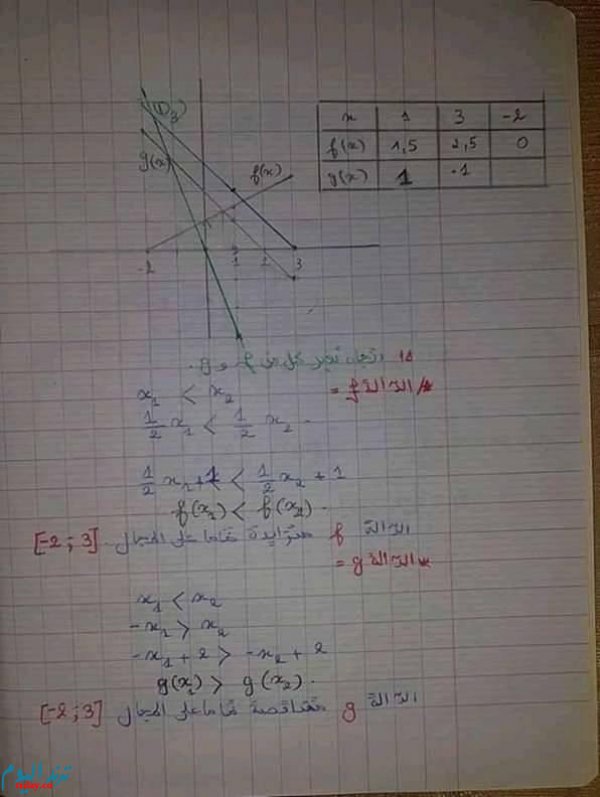 (D3)
g(x)
f(x)
-2 1 2 3
x 1 3 -2
f(x) 1,5 2,5 0
g(x) 1 -1
1) اتجاه تغير كل من f و g.
* الدالة f =
x₁ < x₂
1/2 x₁ < 1/2 x₂
1/2 x₁ + 1 < 1/2 x₂ + 1
f(x₁) < f(x₂).
الدالة f متزايدة تماما على المجال [-2 ; 3]
* الدالة g =
x₁ < x₂
-x₁ > x₂
-x₁ + 2 > -x₂ + 2
g(x₁) > g(x₂).
الدالة g متناقصة تماما على المجال [-2 ; 3]
ترند اليوم